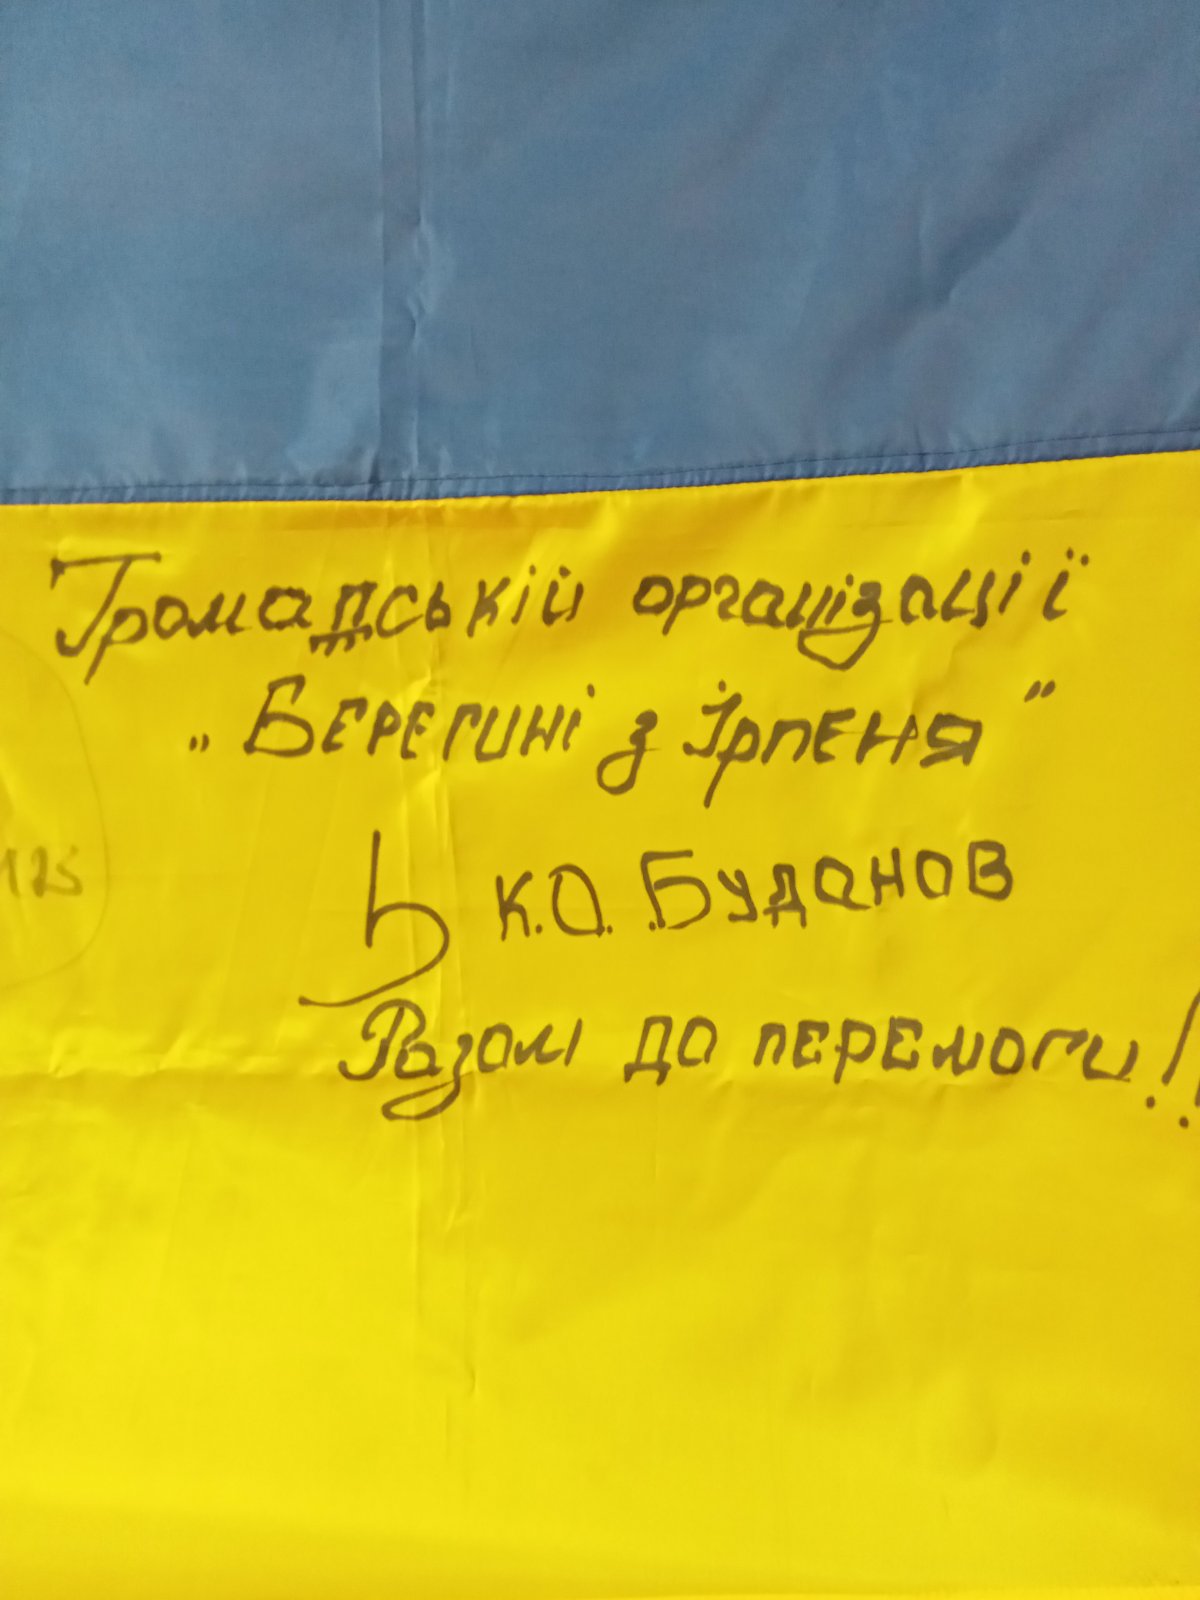 Громадській організації
„Берегині з Ірпеня"
К.О. Буданов
Разом до перемоги!!